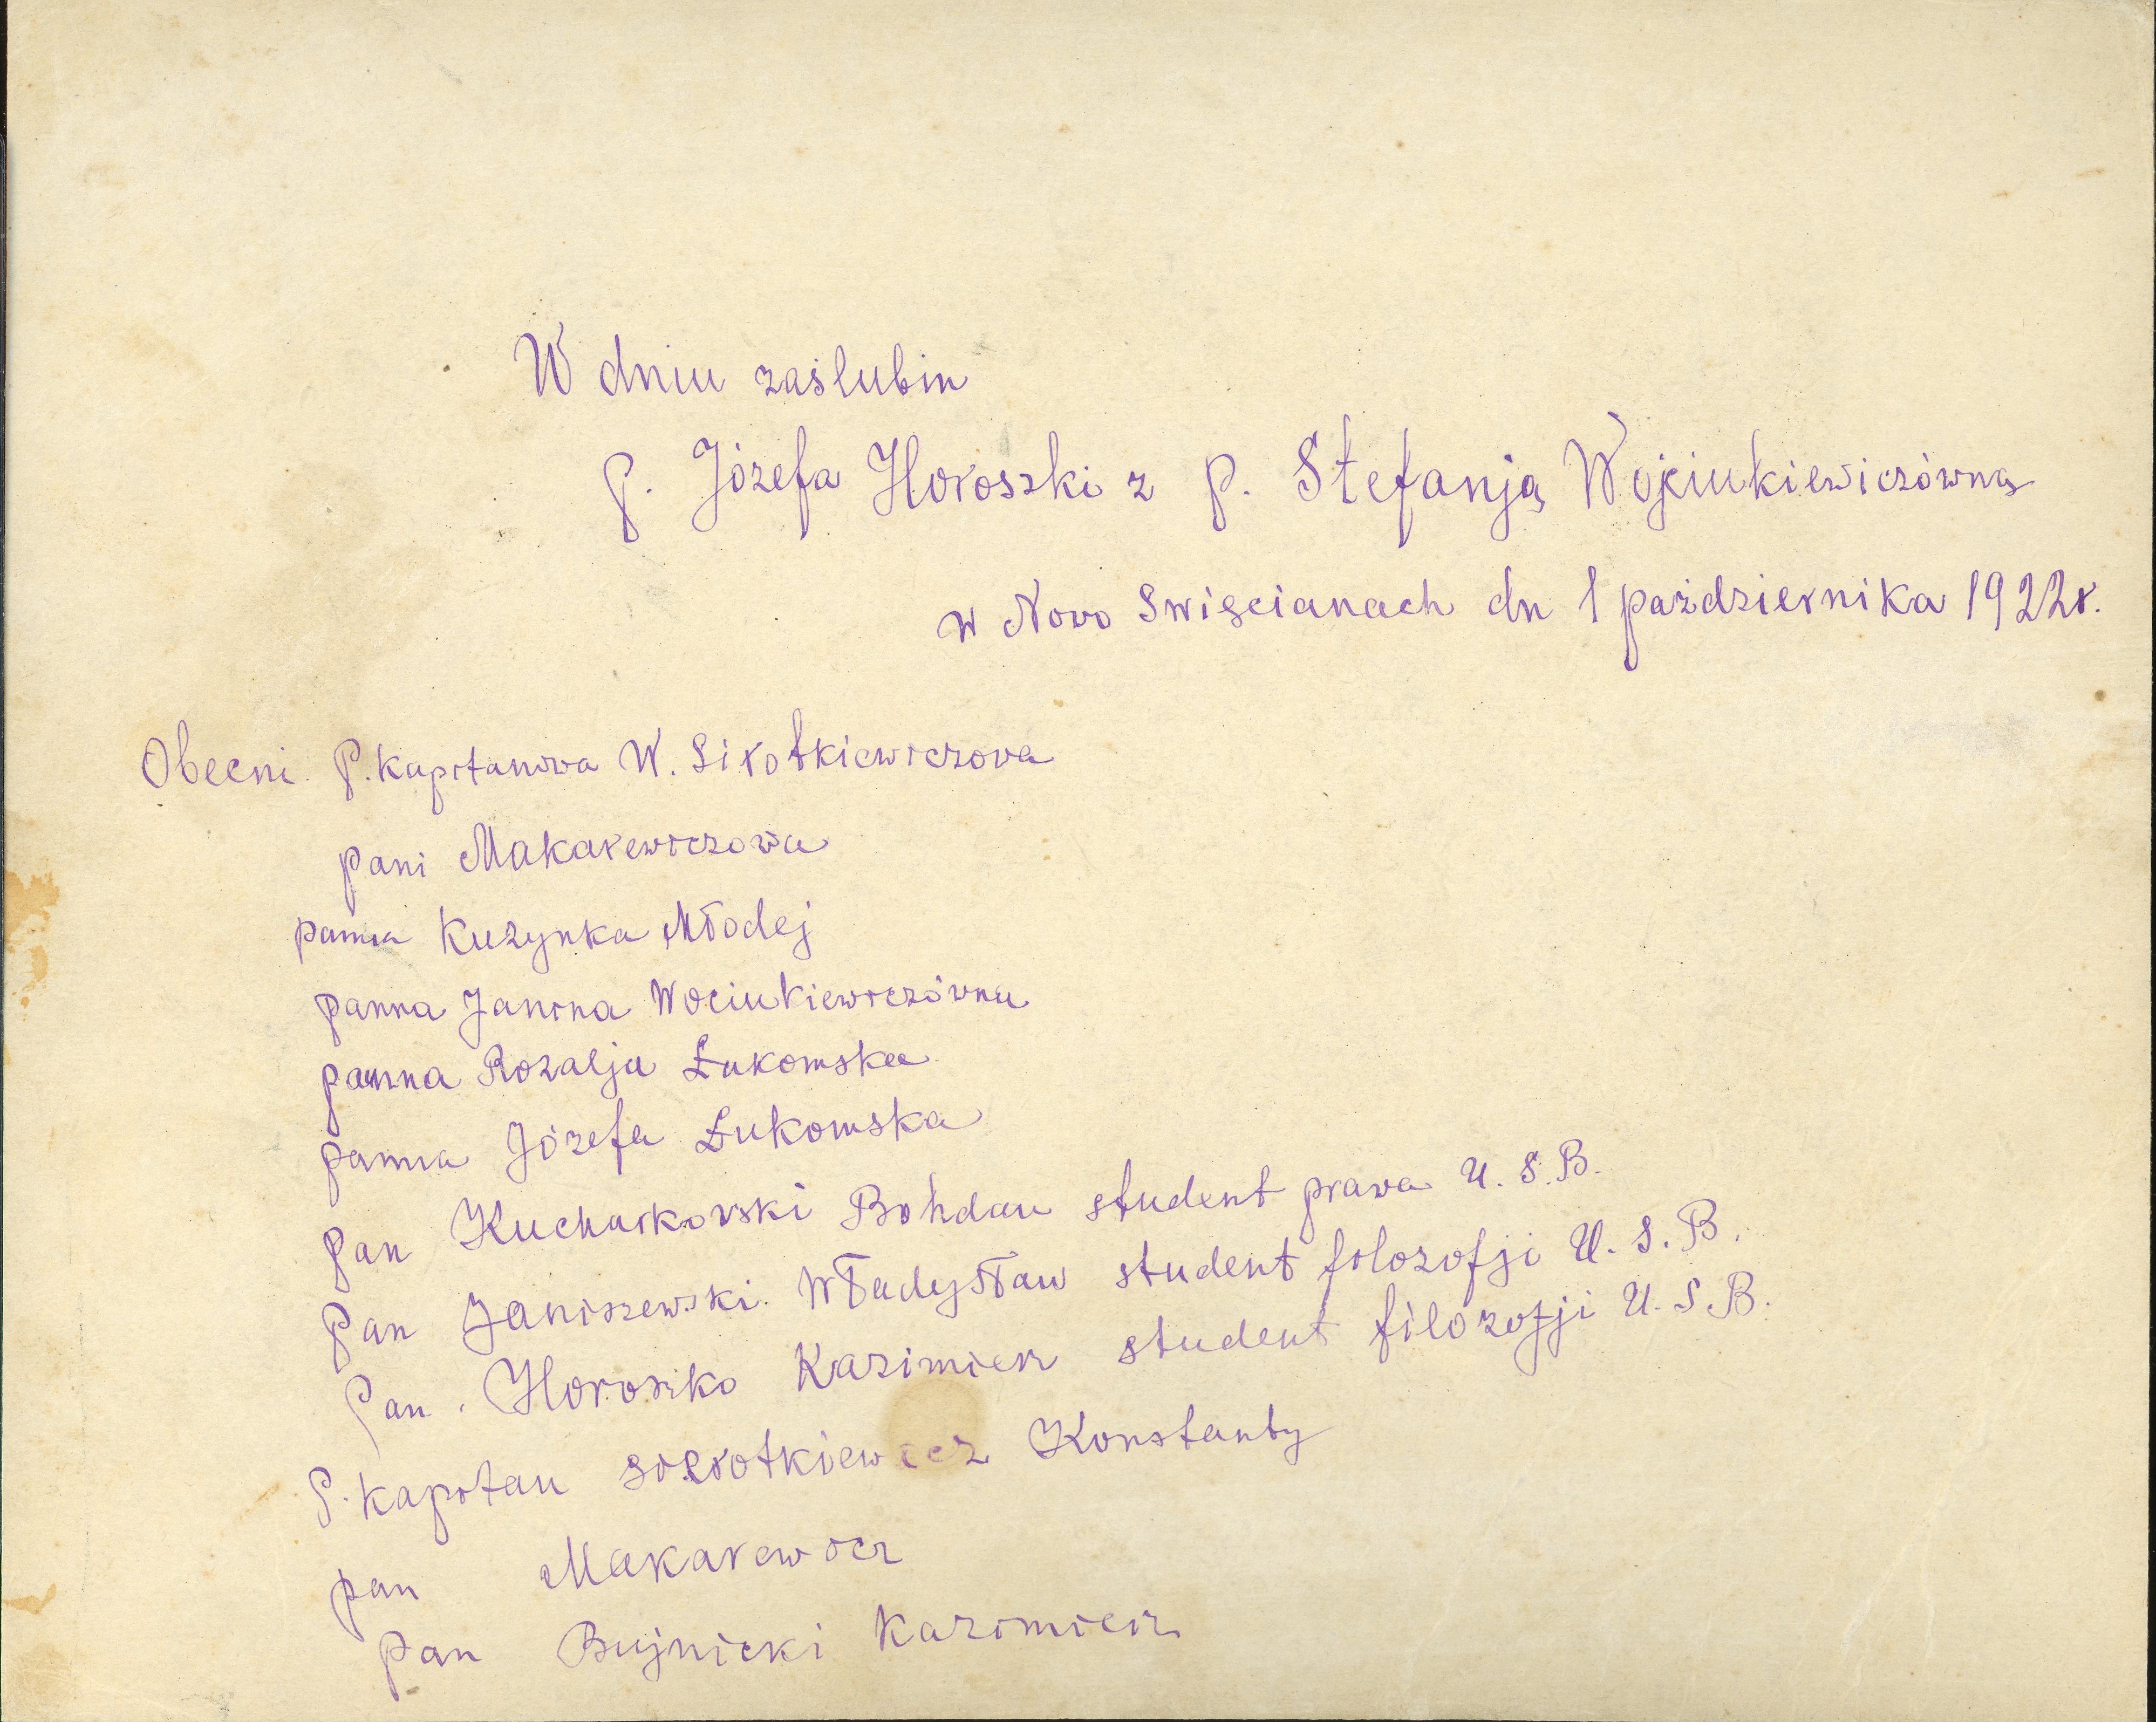 W dniu zaślubin
p. Józefa Horoszki z p. Stefanją Wojciukiewiczówną
w Nowo Swięcianach dn 1 października 1922r.
Obecni P. Kapitanowa W. Sirotkiewiczowa
pani Makarewiczowa
panna Kuzynka Młodej
panna Janina Wociukiewiczówna
panna Rozalja Łukomska
panna Józefa Łukomska
pan Kucharkowski Bohdan student prawa U. S. B.
pan Janiszewski Władysław student filozofji U. S. B.
Pan. Horoszko Kazimierz student filozofji U. S B.
P. Kapitan Sierotkiewicz Konstanty
pan Makarewicz
Pan Bujnicki Kazimierz